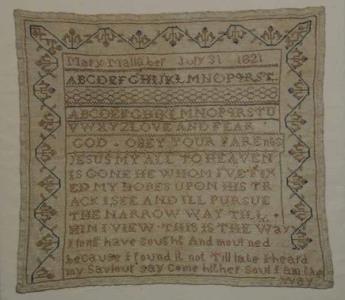 Mary Mallaber July 31 1821
ABCDEFGHIJKLMNOPQRST
ABCDEFGHIKLMNOPQRSTU
VWXYZ LOVE AND FEAR
GOD - OBEY YOUR PARENTS
JESUS MY ALL TO HEAVEN
IS GONE HE WHOM I'VE FIX
ED MY HOPES UPON HIS TR
ACK I SEE AND ILL PURSUE
THE NARROW WAY TILL
HIM I VIEW THIS IS THE Way
I long have sought And mourned
because I found it not Till late I heard
my Saviour say come hither Soul I am the
Way